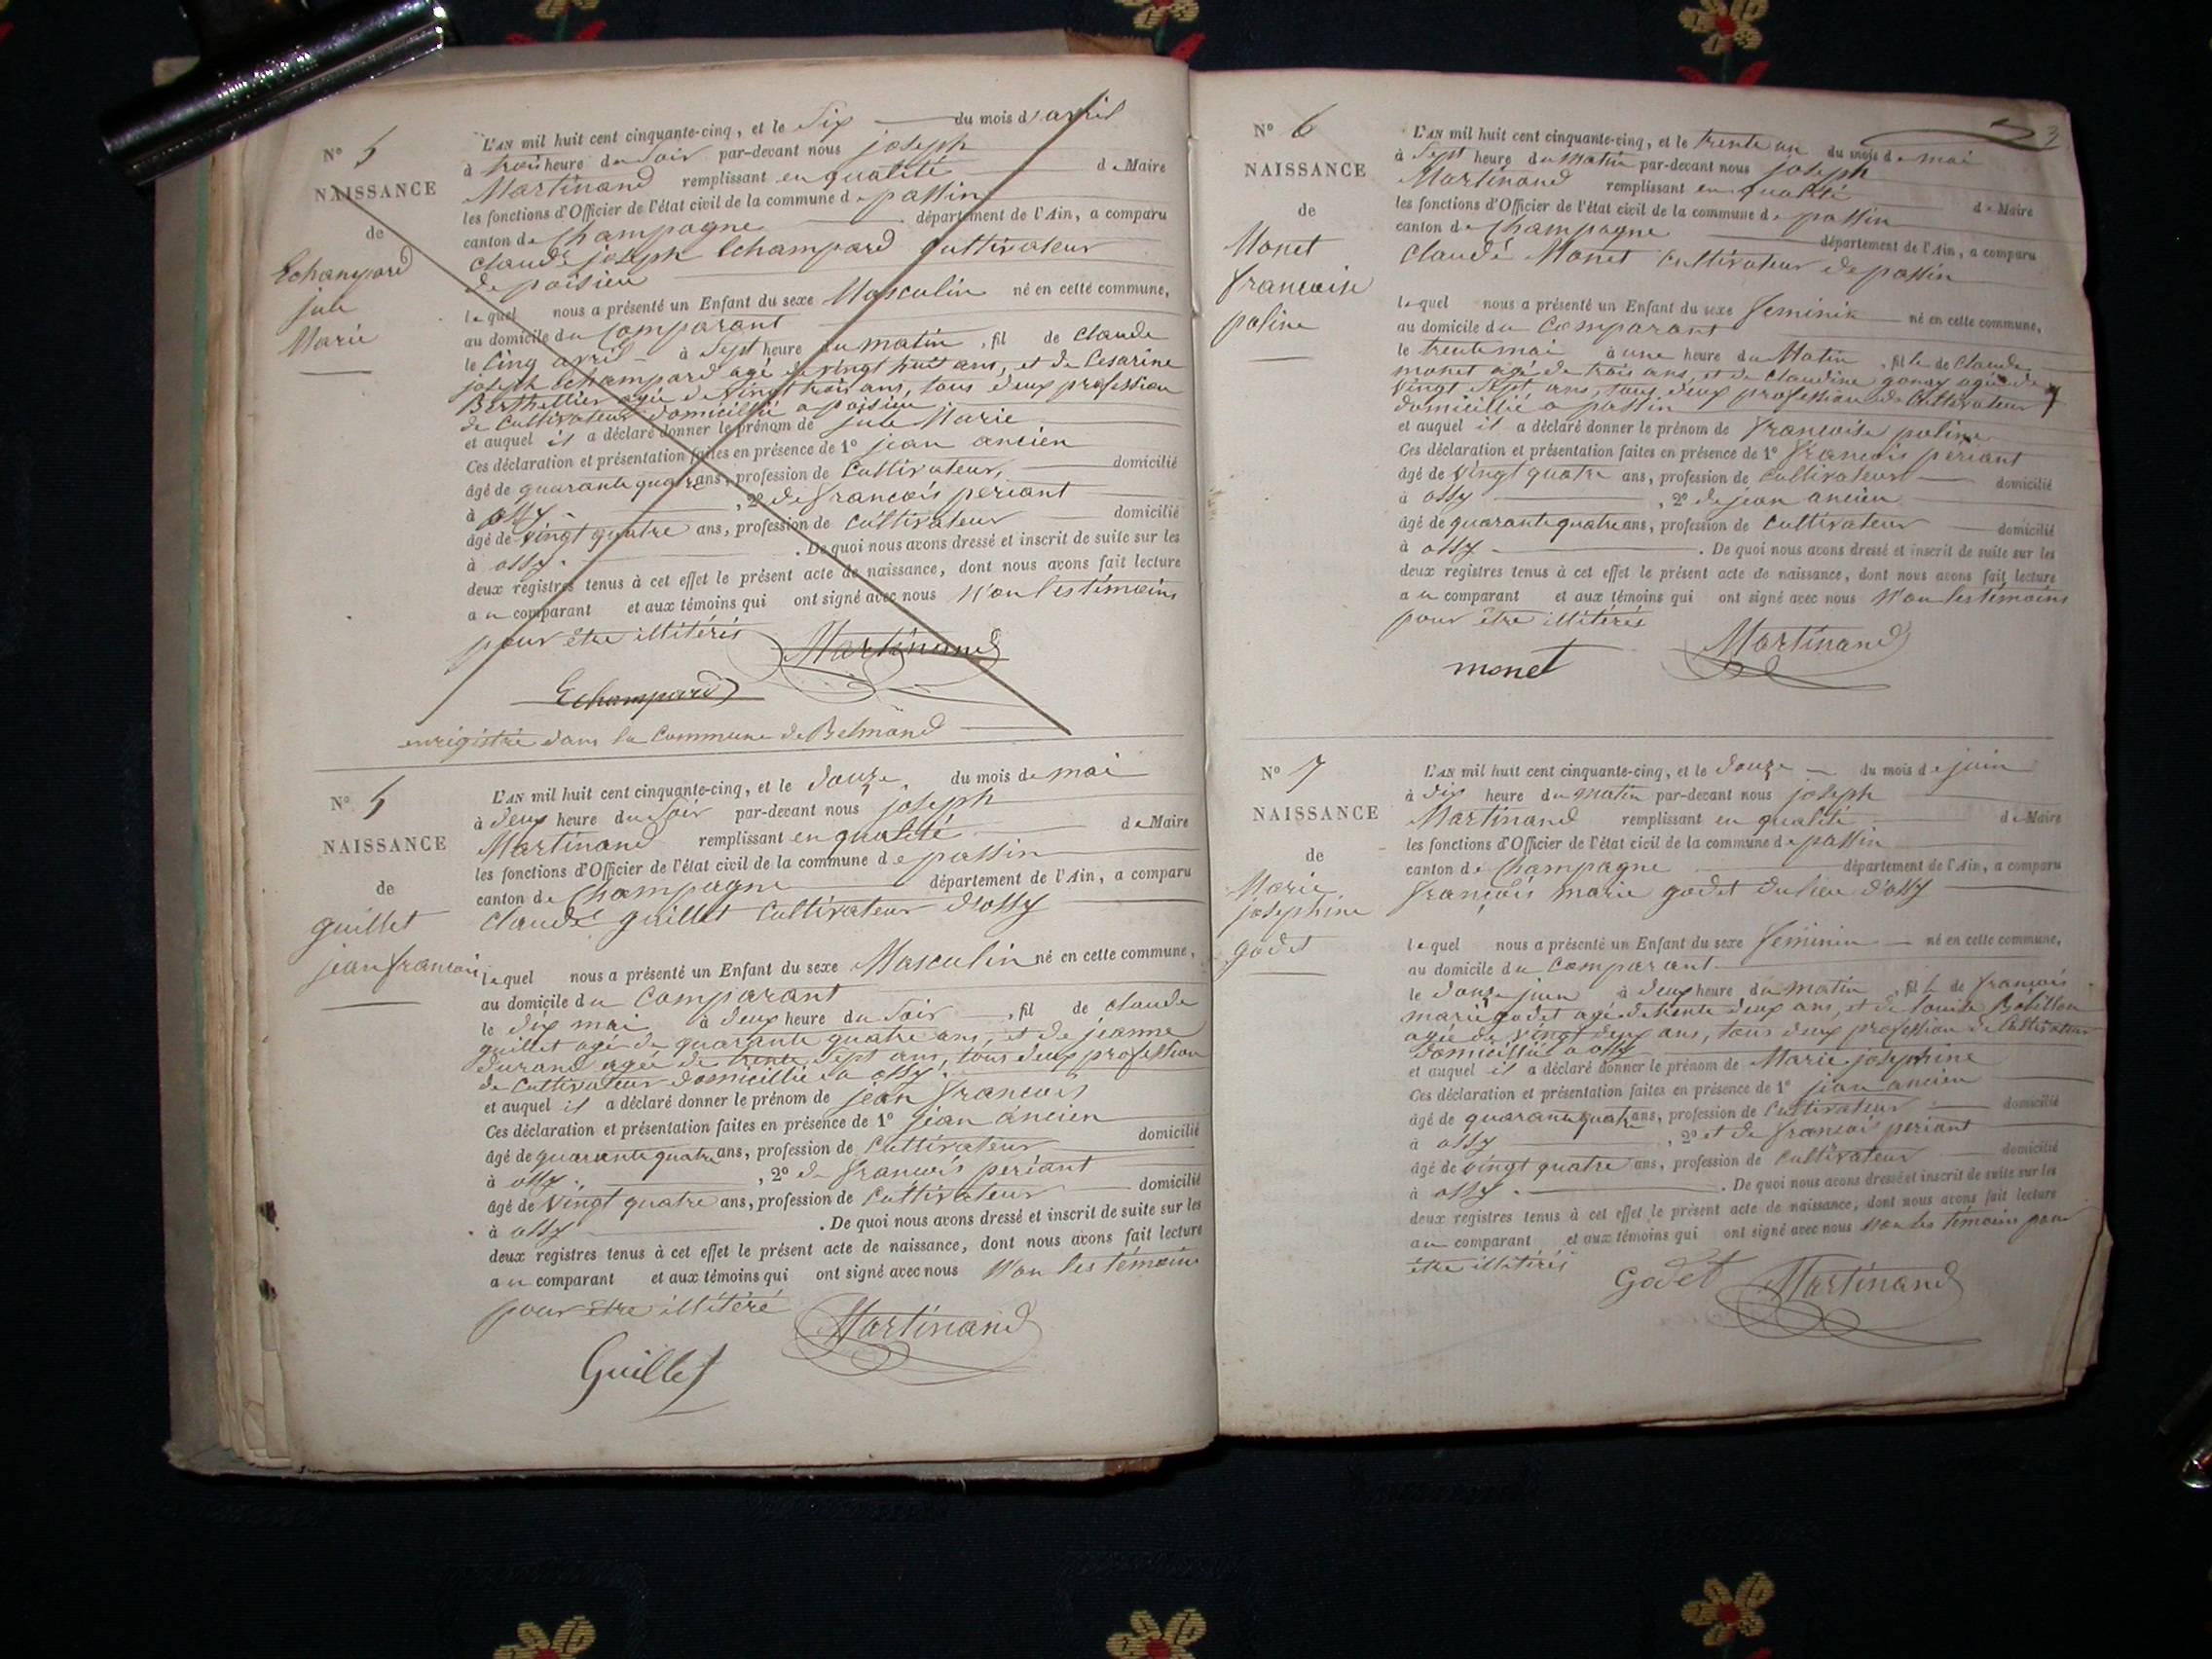 N° 5
NAISSANCE
de
Echampard
jule
Marie
L'AN mil huit cent cinquante-cinq, et le Six du mois d'avril
à trois heure du Soir par-devant nous joseph
Martinand remplissant en qualité de Maire
les fonctions d'Officier de l'état civil de la commune de passin
canton de Champagne département de l'Ain, a comparu
Claude joseph Echampard Cultivateur
de poisieu
lequel nous a présenté un Enfant du sexe Masculin né en cette commune,
au domicile du Comparant
le Cinq avril à Sept heure du matin, fil de Claude
joseph Echampard agé de vingt huit ans, et de Cesarine
Berthellier agée de vingt trois ans, tous deux profession
de Cultivateur domicillié a poisieu
et auquel il a déclaré donner le prénom de jule Marie
Ces déclaration et présentation faites en présence de 1° jean ancien
âgé de quarante quatre ans, profession de Cultivateur, domicilié
à ossy, 2° de francois periant
âgé de vingt quatre ans, profession de Cultivateur domicilié
à ossy. De quoi nous avons dressé et inscrit de suite sur les
deux registres tenus à cet effet le présent acte de naissance, dont nous avons fait lecture
au comparant et aux témoins qui ont signé avec nous Non les témoins
pour être illitérés Martinand
Echampard
enrigistré dans la Commune de Belmond
N° 5
NAISSANCE
de
guillet
jean francois
L'AN mil huit cent cinquante-cinq, et le Douze du mois de mai
à deux heure du Soir par-devant nous joseph
Martinand remplissant en qualité de Maire
les fonctions d'Officier de l'état civil de la commune de passin
canton de Champagne département de l'Ain, a comparu
Claude guillet Cultivateur d'ossy
lequel nous a présenté un Enfant du sexe Masculin né en cette commune,
au domicile du Comparant
le dix mai à deux heure du Soir, fil de Claude
guillet agé de quarante quatre ans, et de jeanne
durand agée de trente Sept ans, tous deux profession
de Cultivateur domicillié a ossy.
et auquel il a déclaré donner le prénom de jean francois
Ces déclaration et présentation faites en présence de 1° jean ancien
âgé de quarante quatre ans, profession de Cultivateur domicilié
à ossy, 2° de francois periant
âgé de vingt quatre ans, profession de Cultivateur domicilié
à ossy. De quoi nous avons dressé et inscrit de suite sur les
deux registres tenus à cet effet le présent acte de naissance, dont nous avons fait lecture
au comparant et aux témoins qui ont signé avec nous Non les témoins
pour être illitéré Martinand
Guillet
3
N° 6
NAISSANCE
de
Monet
francoise
poline
L'AN mil huit cent cinquante-cinq, et le trente un du mois de mai
à Sept heure du Matin par-devant nous joseph
Martinand remplissant en qualité de Maire
les fonctions d'Officier de l'état civil de la commune de passin
canton de Champagne département de l'Ain, a comparu
Claude Monet Cultivateur de passin
lequel nous a présenté un Enfant du sexe feminin né en cette commune,
au domicile du Comparant
le trente mai à une heure du Matin, fille de Claude
monet agé de trois ans, et de Claudine agée de
vingt Sept ans, tous deux profession de Cultivateur
domicillié a passin
et auquel il a déclaré donner le prénom de francoise poline
Ces déclaration et présentation faites en présence de 1° francois periant
âgé de vingt quatre ans, profession de Cultivateur domicilié
à ossy, 2° de jean ancien
âgé de quarante quatre ans, profession de Cultivateur domicilié
à ossy. De quoi nous avons dressé et inscrit de suite sur les
deux registres tenus à cet effet le présent acte de naissance, dont nous avons fait lecture
au comparant et aux témoins qui ont signé avec nous Non les témoins
pour être illitérés Martinand
monet
N° 7
NAISSANCE
de
Marie
josephine
godet
L'AN mil huit cent cinquante-cinq, et le Douze du mois de juin
à dix heure du matin par-devant nous joseph
Martinand remplissant en qualité de Maire
les fonctions d'Officier de l'état civil de la commune de passin
canton de Champagne département de l'Ain, a comparu
francois marie godet du lieu d'ossy
lequel nous a présenté un Enfant du sexe feminin né en cette commune,
au domicile du Comparant
le douze juin à deux heure du matin, fille de francois
marie godet agé de trente deux ans, et de louise Bobillon
agée de vingt deux ans, tous deux profession de Cultivateur
domicillié a ossy
et auquel il a déclaré donner le prénom de Marie josephine
Ces déclaration et présentation faites en présence de 1° jean ancien
âgé de quarante quatre ans, profession de Cultivateur domicilié
à ossy, 2° et de francois periant
âgé de vingt quatre ans, profession de Cultivateur domicilié
à ossy. De quoi nous avons dressé et inscrit de suite sur les
deux registres tenus à cet effet le présent acte de naissance, dont nous avons fait lecture
au comparant et aux témoins qui ont signé avec nous Non les témoins pour
être illitérés
Godet Martinand